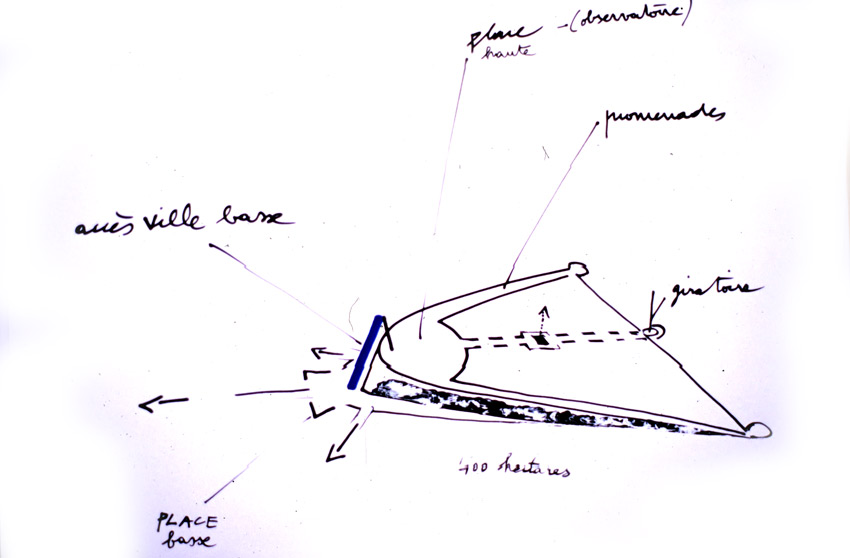 place - (observatoire)
haute
promenades
accès ville basse
giratoire
400 hectares
PLACE
basse